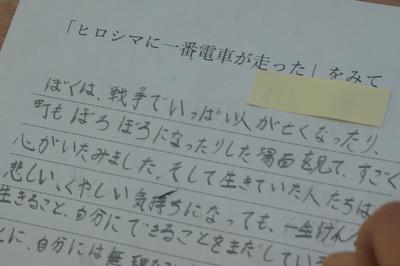 「ヒロシマに一番電車が走った」をみて
ぼくは、戦争でいっぱい人が亡くなったり、
町もぼろぼろになったりした場面を見て、すごく
心がいたみました。そして生きていた人たちは
悲しい、くやしい気持ちになっても、一生けん
生きること、自分にできることをまだしている
に、自分には無理な